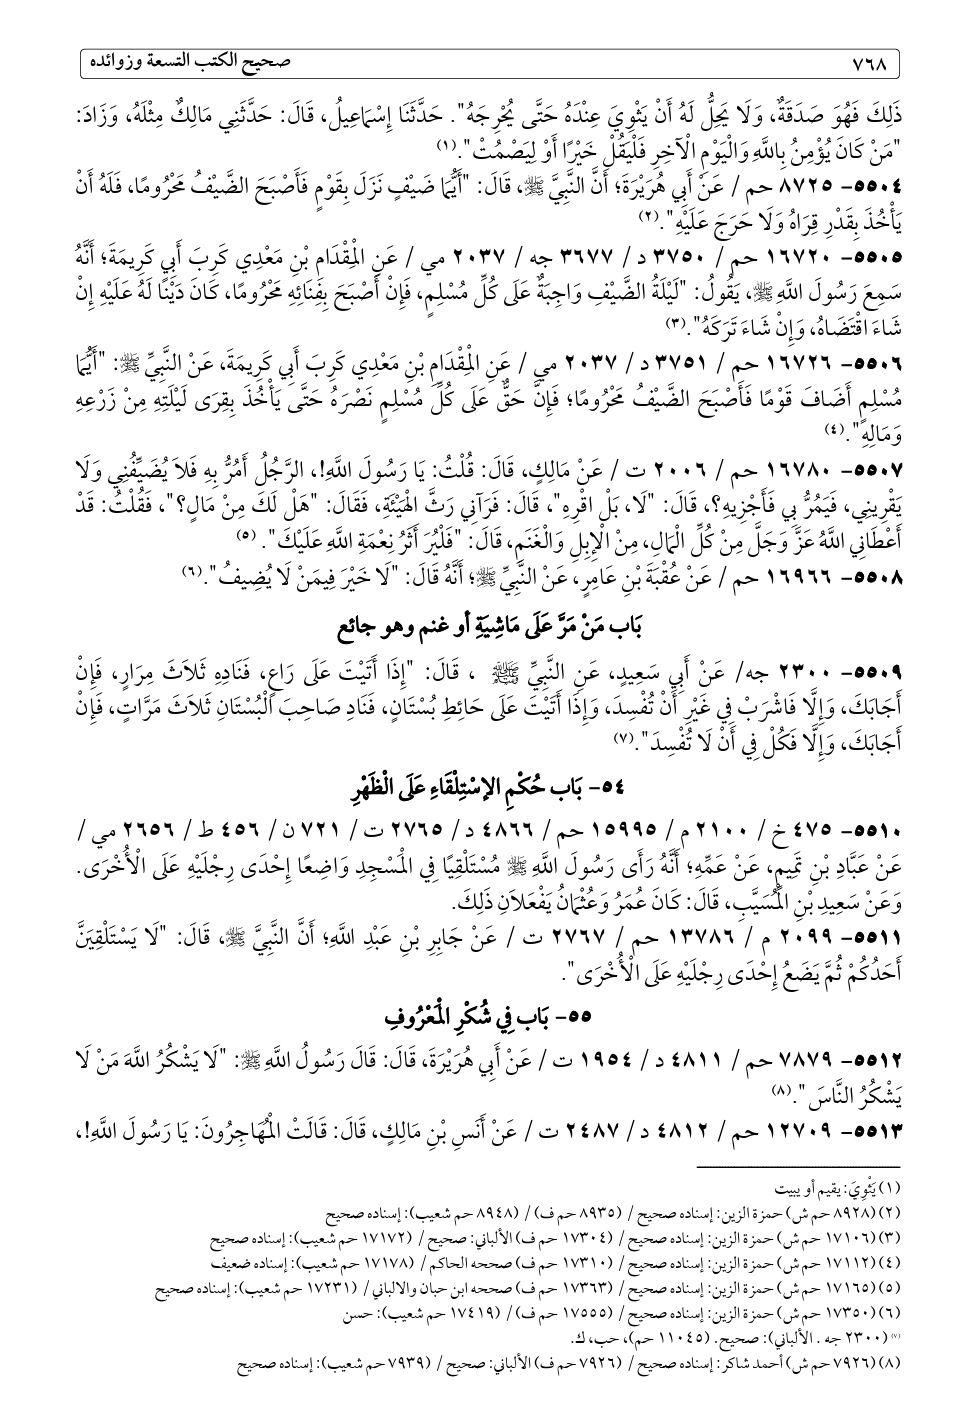 ٧٦٨ صحيح الكتب التسعة وزوائده
ذَلِكَ فَهُوَ صَدَقَةٌ، وَلَا يَحِلُّ لَهُ أَنْ يَثْوِيَ عِنْدَهُ حَتَّى يُحْرِجَهُ". حَدَّثَنَا إِسْمَاعِيلُ، قَالَ: حَدَّثَنِي مَالِكٌ مِثْلَهُ، وَزَادَ:
"مَنْ كَانَ يُؤْمِنُ بِاللَّهِ وَالْيَوْمِ الْآخِرِ فَلْيَقُلْ خَيْرًا أَوْ لِيَصْمُتْ".(١)
٥٥٠٤- ٨٧٢٥ حم / عَنْ أَبِي هُرَيْرَةَ؛ أَنَّ النَّبِيَّ ﷺ، قَالَ: "أَيُّمَا ضَيْفٍ نَزَلَ بِقَوْمٍ فَأَصْبَحَ الضَّيْفُ مَحْرُومًا، فَلَهُ أَنْ
يَأْخُذَ بِقَدْرِ قِرَاهُ وَلَا حَرَجَ عَلَيْهِ".(٢)
٥٥٠٥- ١٦٧٢٠ حم / ٣٧٥٠ د / ٣٦٧٧ جه / ٢٠٣٧ مي / عَنِ الْمِقْدَامِ بْنِ مَعْدِي كَرِبَ أَبِي كَرِيمَةَ؛ أَنَّهُ
سَمِعَ رَسُولَ اللَّهِ ﷺ، يَقُولُ: "لَيْلَةُ الضَّيْفِ وَاجِبَةٌ عَلَى كُلِّ مُسْلِمٍ، فَإِنْ أَصْبَحَ بِفِنَائِهِ مَحْرُومًا، كَانَ دَيْنًا لَهُ عَلَيْهِ إِنْ
شَاءَ اقْتَضَاهُ، وَإِنْ شَاءَ تَرَكَهُ".(٣)
٥٥٠٦- ١٦٧٢٦ حم / ٣٧٥١ د / ٢٠٣٧ مي / عَنِ الْمِقْدَامِ بْنِ مَعْدِي كَرِبَ أَبِي كَرِيمَةَ، عَنْ النَّبِيِّ ﷺ: "أَيُّمَا
مُسْلِمٍ أَضَافَ قَوْمًا فَأَصْبَحَ الضَّيْفُ مَحْرُومًا؛ فَإِنَّ حَقٌّ عَلَى كُلِّ مُسْلِمٍ نَصْرَهُ حَتَّى يَأْخُذَ بِقِرَى لَيْلَتِهِ مِنْ زَرْعِهِ
وَمَالِهِ".(٤)
٥٥٠٧- ١٦٧٨٠ حم / ٢٠٠٦ ت / عَنْ مَالِكٍ، قَالَ: قُلْتُ: يَا رَسُولَ اللَّهِ!، الرَّجُلُ أَمُرُّ بِهِ فَلاَ يُضَيِّفُنِي وَلَا
يَقْرِينِي، فَيَمُرُّ بِي فَأَجْزِيهِ؟، قَالَ: "لَا، بَلْ اقْرِهِ"، قَالَ: فَرَآنِي رَثَّ الْهَيْئَةِ، فَقَالَ: "هَلْ لَكَ مِنْ مَالٍ؟"، فَقُلْتُ: قَدْ
أَعْطَانِي اللَّهُ عَزَّ وَجَلَّ مِنْ كُلِّ الْمَالِ، مِنْ الْإِبِلِ وَالْغَنَمِ، قَالَ: "فَلْيُرَ أَثَرُ نِعْمَةِ اللَّهِ عَلَيْكَ". (٥)
٥٥٠٨- ١٦٩٦٦ حم / عَنْ عُقْبَةَ بْنِ عَامِرٍ، عَنْ النَّبِيِّ ﷺ؛ أَنَّهُ قَالَ: "لَا خَيْرَ فِيمَنْ لَا يُضِيفُ".(٦)
بَاب مَنْ مَرَّ عَلَى مَاشِيَةٍ أو غنم وهو جائع
٥٥٠٩- ٢٣٠٠ جه/ عَنْ أَبِي سَعِيدٍ، عَنِ النَّبِيِّ ﷺ ، قَالَ: "إِذَا أَتَيْتَ عَلَى رَاعٍ، فَنَادِهِ ثَلَاثَ مِرَارٍ، فَإِنْ
أَجَابَكَ، وَإِلَّا فَاشْرَبْ فِي غَيْرِ أَنْ تُفْسِدَ، وَإِذَا أَتَيْتَ عَلَى حَائِطِ بُسْتَانٍ، فَنَادِ صَاحِبَ الْبُسْتَانِ ثَلَاثَ مَرَّاتٍ، فَإِنْ
أَجَابَكَ، وَإِلَّا فَكُلْ فِي أَنْ لَا تُفْسِدَ".(٧)
٥٤- بَاب حُكْمِ الإسْتِلْقَاءِ عَلَى الْظَهْرِ
٥٥١٠- ٤٧٥ خ / ٢١٠٠ م / ١٥٩٩٥ حم / ٤٨٦٦ د / ٢٧٦٥ ت / ٧٢١ ن / ٤٥٦ ط / ٢٦٥٦ مي /
عَنْ عَبَّادِ بْنِ تَمِيمٍ، عَنْ عَمِّهِ؛ أَنَّهُ رَأَى رَسُولَ اللَّهِ ﷺ مُسْتَلْقِيًا فِي الْمَسْجِدِ وَاضِعًا إِحْدَى رِجْلَيْهِ عَلَى الْأُخْرَى.
وَعَنْ سَعِيدِ بْنِ الْمُسَيَّبِ، قَالَ: كَانَ عُمَرُ وَعُثْمَانُ يَفْعَلاَنِ ذَلِكَ.
٥٥١١- ٢٠٩٩ م / ١٣٧٨٦ حم / ٢٧٦٧ ت / عَنْ جَابِرِ بْنِ عَبْدِ اللَّهِ؛ أَنَّ النَّبِيَّ ﷺ، قَالَ: "لَا يَسْتَلْقِيَنَّ
أَحَدُكُمْ ثُمَّ يَضَعُ إِحْدَى رِجْلَيْهِ عَلَى الْأُخْرَى".
٥٥- بَاب فِي شُكْرِ الْمَعْرُوفِ
٥٥١٢- ٧٨٧٩ حم / ٤٨١١ د / ١٩٥٤ ت / عَنْ أَبِي هُرَيْرَةَ، قَالَ: قَالَ رَسُولُ اللَّهِ ﷺ: "لَا يَشْكُرُ اللَّهَ مَنْ لَا
يَشْكُرُ النَّاسَ".(٨)
٥٥١٣- ١٢٧٠٩ حم / ٤٨١٢ د / ٢٤٨٧ ت / عَنْ أَنَسِ بْنِ مَالِكٍ، قَالَ: قَالَتْ الْمُهَاجِرُونَ: يَا رَسُولَ اللَّهِ!،
(١) يَثْوِيَ: يقيم أو يبيت
(٢) (٨٩٢٨ حم ش) حمزة الزين: إسناده صحيح / (٨٩٣٥ حم ف) / (٨٩٤٨ حم شعيب): إسناده صحيح
(٣) (١٧١٠٦ حم ش) حمزة الزين: إسناده صحيح / (١٧٣٠٤ حم ف) الألباني: صحيح / (١٧١٧٢ حم شعيب): إسناده صحيح
(٤) (١٧١١٢ حم ش) حمزة الزين: إسناده صحيح / (١٧٣١٠ حم ف) صححه الحاكم / (١٧١٧٨ حم شعيب): إسناده ضعيف
(٥) (١٧١٦٥ حم ش) حمزة الزين: إسناده صحيح / (١٧٣٦٣ حم ف) صححه ابن حبان والالباني / (١٧٢٣١ حم شعيب): إسناده صحيح
(٦) (١٧٣٥٠ حم ش) حمزة الزين: إسناده صحيح / (١٧٥٥٥ حم ف) / (١٧٤١٩ حم شعيب): حسن
(٧) (٢٣٠٠ جه . الألباني): صحيح. (١١٠٤٥ حم)، حب، ك.
(٨) (٧٩٢٦ حم ش) أحمد شاكر: إسناده صحيح / (٧٩٢٦ حم ف) الألباني: صحيح / (٧٩٣٩ حم شعيب): إسناده صحيح